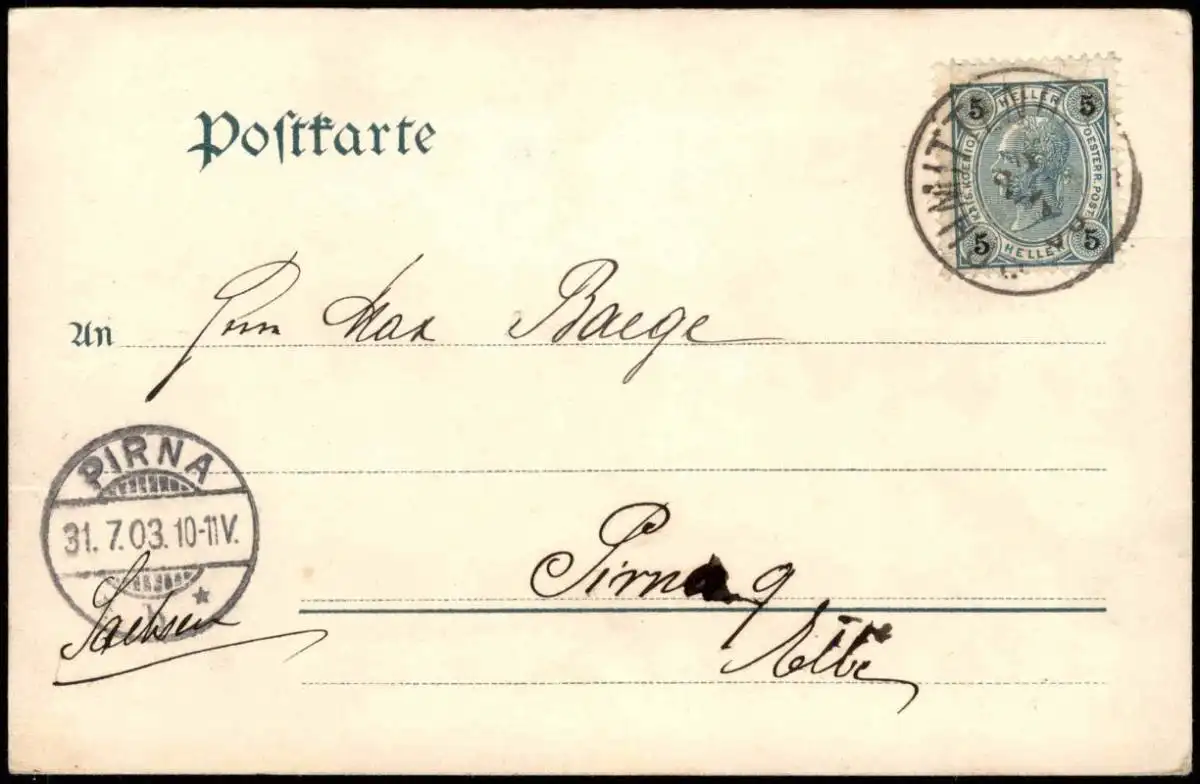 Postkarte
5 HELLER 5
KAIS. KOENIG. OESTERR. POST.
5 HELLER 5
An Herrn Max Baege
PIRNA
31. 7. 03. 10-11 V.
Pirna a
Elbe
Sachsen